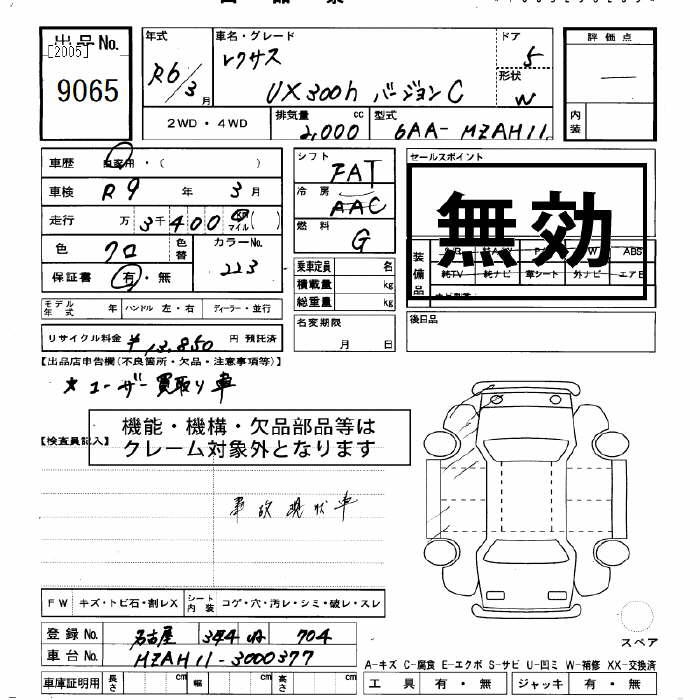 出品No.
[2005]
9065
年式
R6/3月
車名・グレード
レクサス
UX300h バージョンC
ドア
5
形状
W
評価点
―
内装
2WD・4WD
排気量 cc
2,000
型式
6AA-MZAH11
車歴 自家用・( )
車検 R9年 3月
走行 万3千400 マイル( )
色 クロ
色替
カラーNo.
223
保証書 有・無
シフト
FAT
冷房
AAC
燃料
G
セールスポイント
無効
装備品
ABS
純TV 純ナビ 革シート 外ナビ エアB
乗車定員 名
積載量 kg
総重量 kg
モデル年式 年 ハンドル 左・右 ディーラー・並行
名変期限
月 日
後日品
リサイクル料金 ¥13,850 円 預託済
【出品店申告欄(不良箇所・欠品・注意事項等)】
★ユーザー買取り車
機能・機構・欠品部品等は
クレーム対象外となります
【検査員記入】
事故現状車
FW キズ・トビ石・割レX シート内装 コゲ・穴・汚レ・シミ・破レ・スレ
登録No. 名古屋 344 704
車台No. MZAH11-3000377
車庫証明用 長さ cm 幅 cm 高さ cm
スペア
A-キズ C-腐食 E-エクボ S-サビ U-凹ミ W-補修 XX-交換済
工具 有・無 ジャッキ 有・無